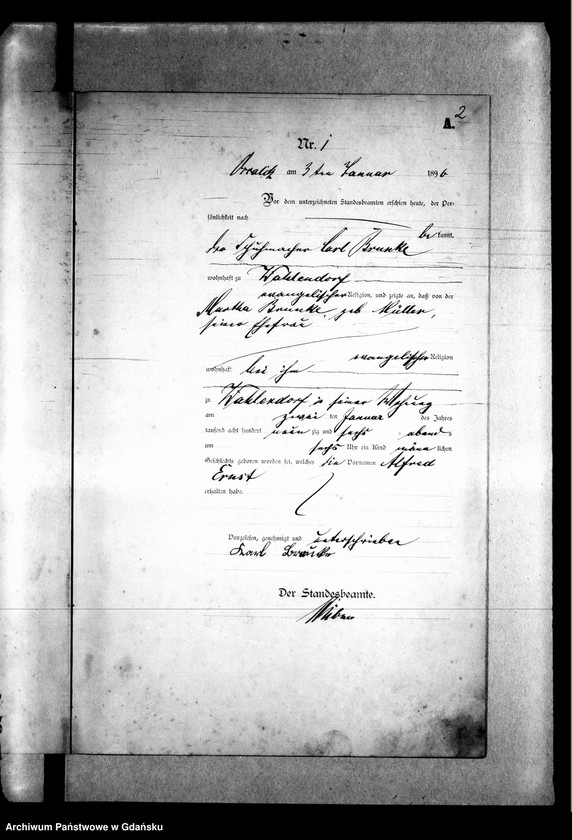 2
A.
Nr. 1
am 3ten Januar 1896
Vor dem unterzeichneten Standesbeamten erschien heute, der Per-
sönlichkeit nach
be kannt,
der Schuhmacher Carl Brunke
wohnhaft zu Wahlendorf
evangelischer Religion, und zeigte an, daß von der
Martha Brunke, geb Müller,
seiner Ehefrau
evangelischer Religion
wohnhaft bei ihm
zu Wahlendorf in seiner Wohnung
am zwei ten Januar des Jahres
tausend acht hundert neun zig und sechs abends
um sechs Uhr ein Kind männ lichen
Geschlechts geboren worden sei, welches die Vornamen Alfred
Ernst
erhalten habe.
Vorgelesen, genehmigt und unterschrieben
Karl Brunke
Der Standesbeamte.
Archiwum Państwowe w Gdańsku